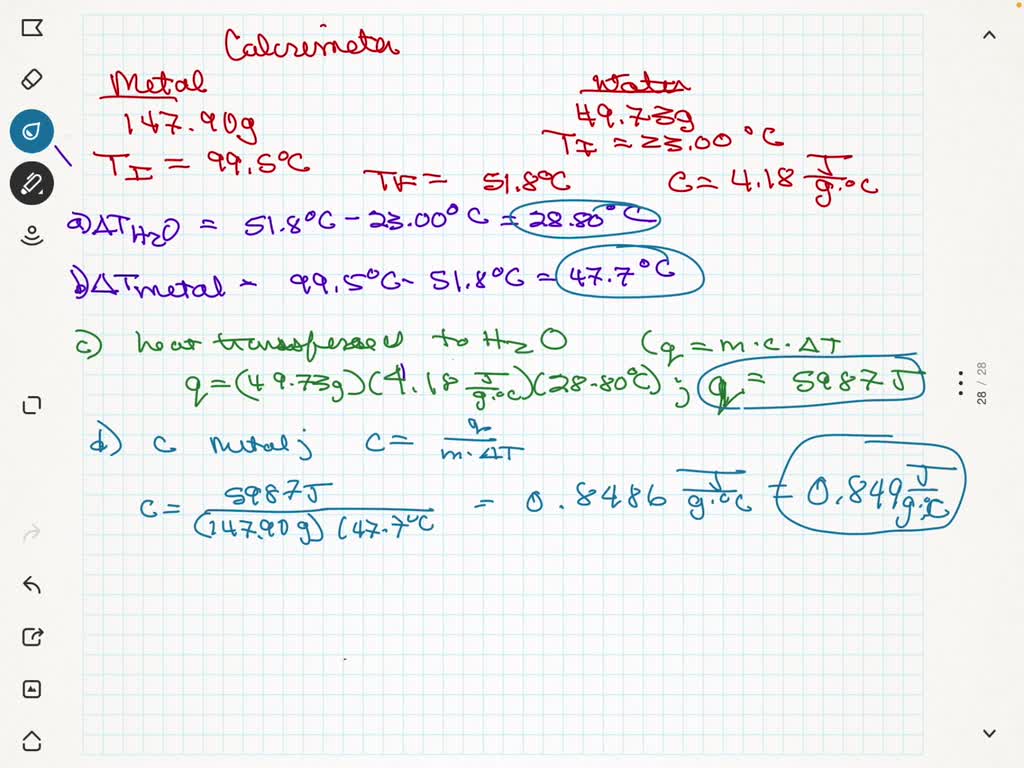 Calorimeter
Metal
147.90g
T_I = 99.5°C
Water
49.73g
T_I = 23.00 °C
T_F = 51.8°C
C = 4.18 J/g·°C
a) ΔT_H2O = 51.8°C - 23.00°C = 28.80°C
b) ΔT metal = 99.5°C - 51.8°C = 47.7°C
c) heat transferred to H2O (q = m·c·ΔT
q = (49.73g)(4.18 J/g·°C)(28.80°C) ; q = 5987J
d) C metal ; C = q/m·ΔT
C = 5987J/(147.90g)(47.7°C = 0.8486 J/g·°C = 0.849 J/g·°C
28 / 28